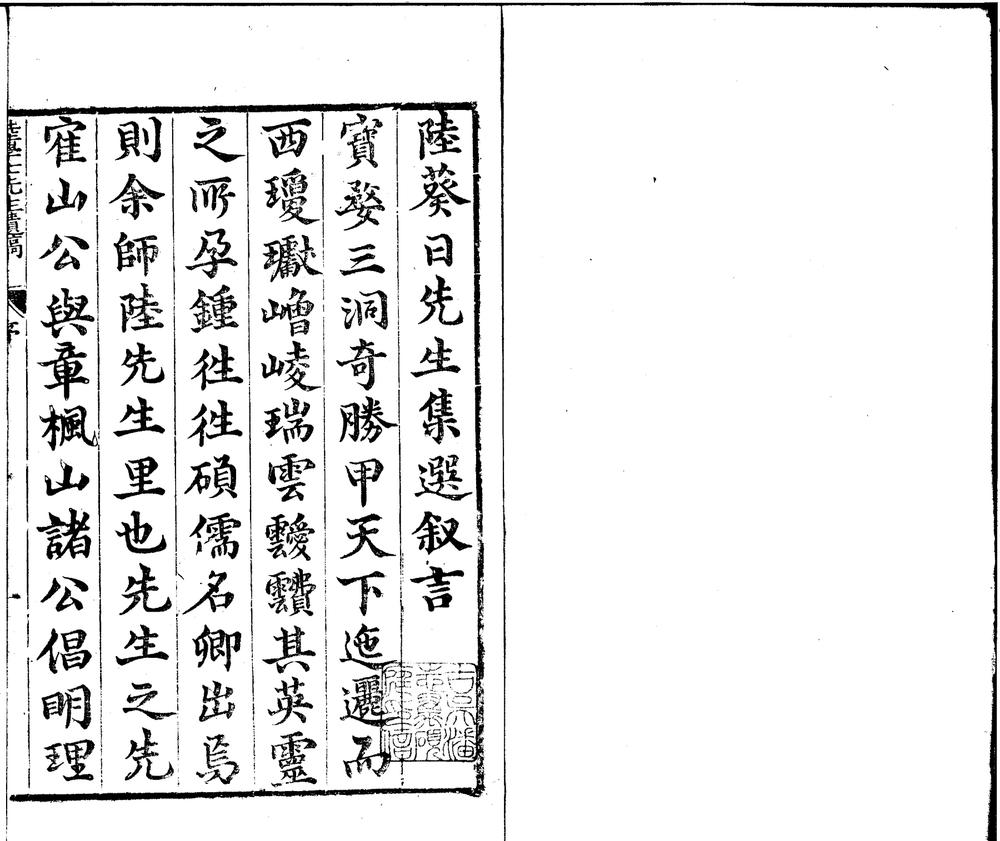 陸葵日先生集選叙言
寶婺三洞奇勝甲天下迤邐而
西瓊瓛嶒崚瑞雲靉靅其英靈
之所孕鍾徃徃碩儒名卿出焉
則余師陸先生里也先生之先
寉山公與章楓山諸公倡明理
陸學士先生遺稿 序 一